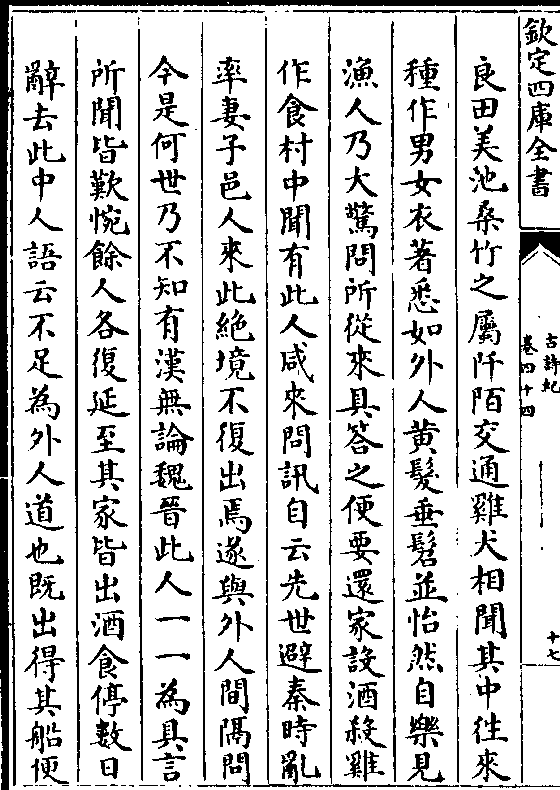 欽定四庫全書
古詩紀
卷四十四
十七
良田美池桑竹之屬阡陌交通雞犬相聞其中徃來
種作男女衣著悉如外人黄髮垂髫並怡然自樂見
漁人乃大驚問所從來具答之便要還家設酒殺雞
作食村中聞有此人咸來問訊自云先世避秦時亂
率妻子邑人來此絶境不復出焉遂與外人間隔問
今是何世乃不知有漢無論魏晉此人一一為具言
所聞皆歎惋餘人各復延至其家皆出酒食停數日
辭去此中人語云不足為外人道也既出得其船便